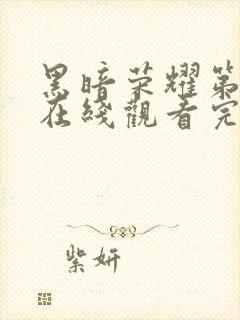 黑暗荣耀第
在线觀看完
紫妍